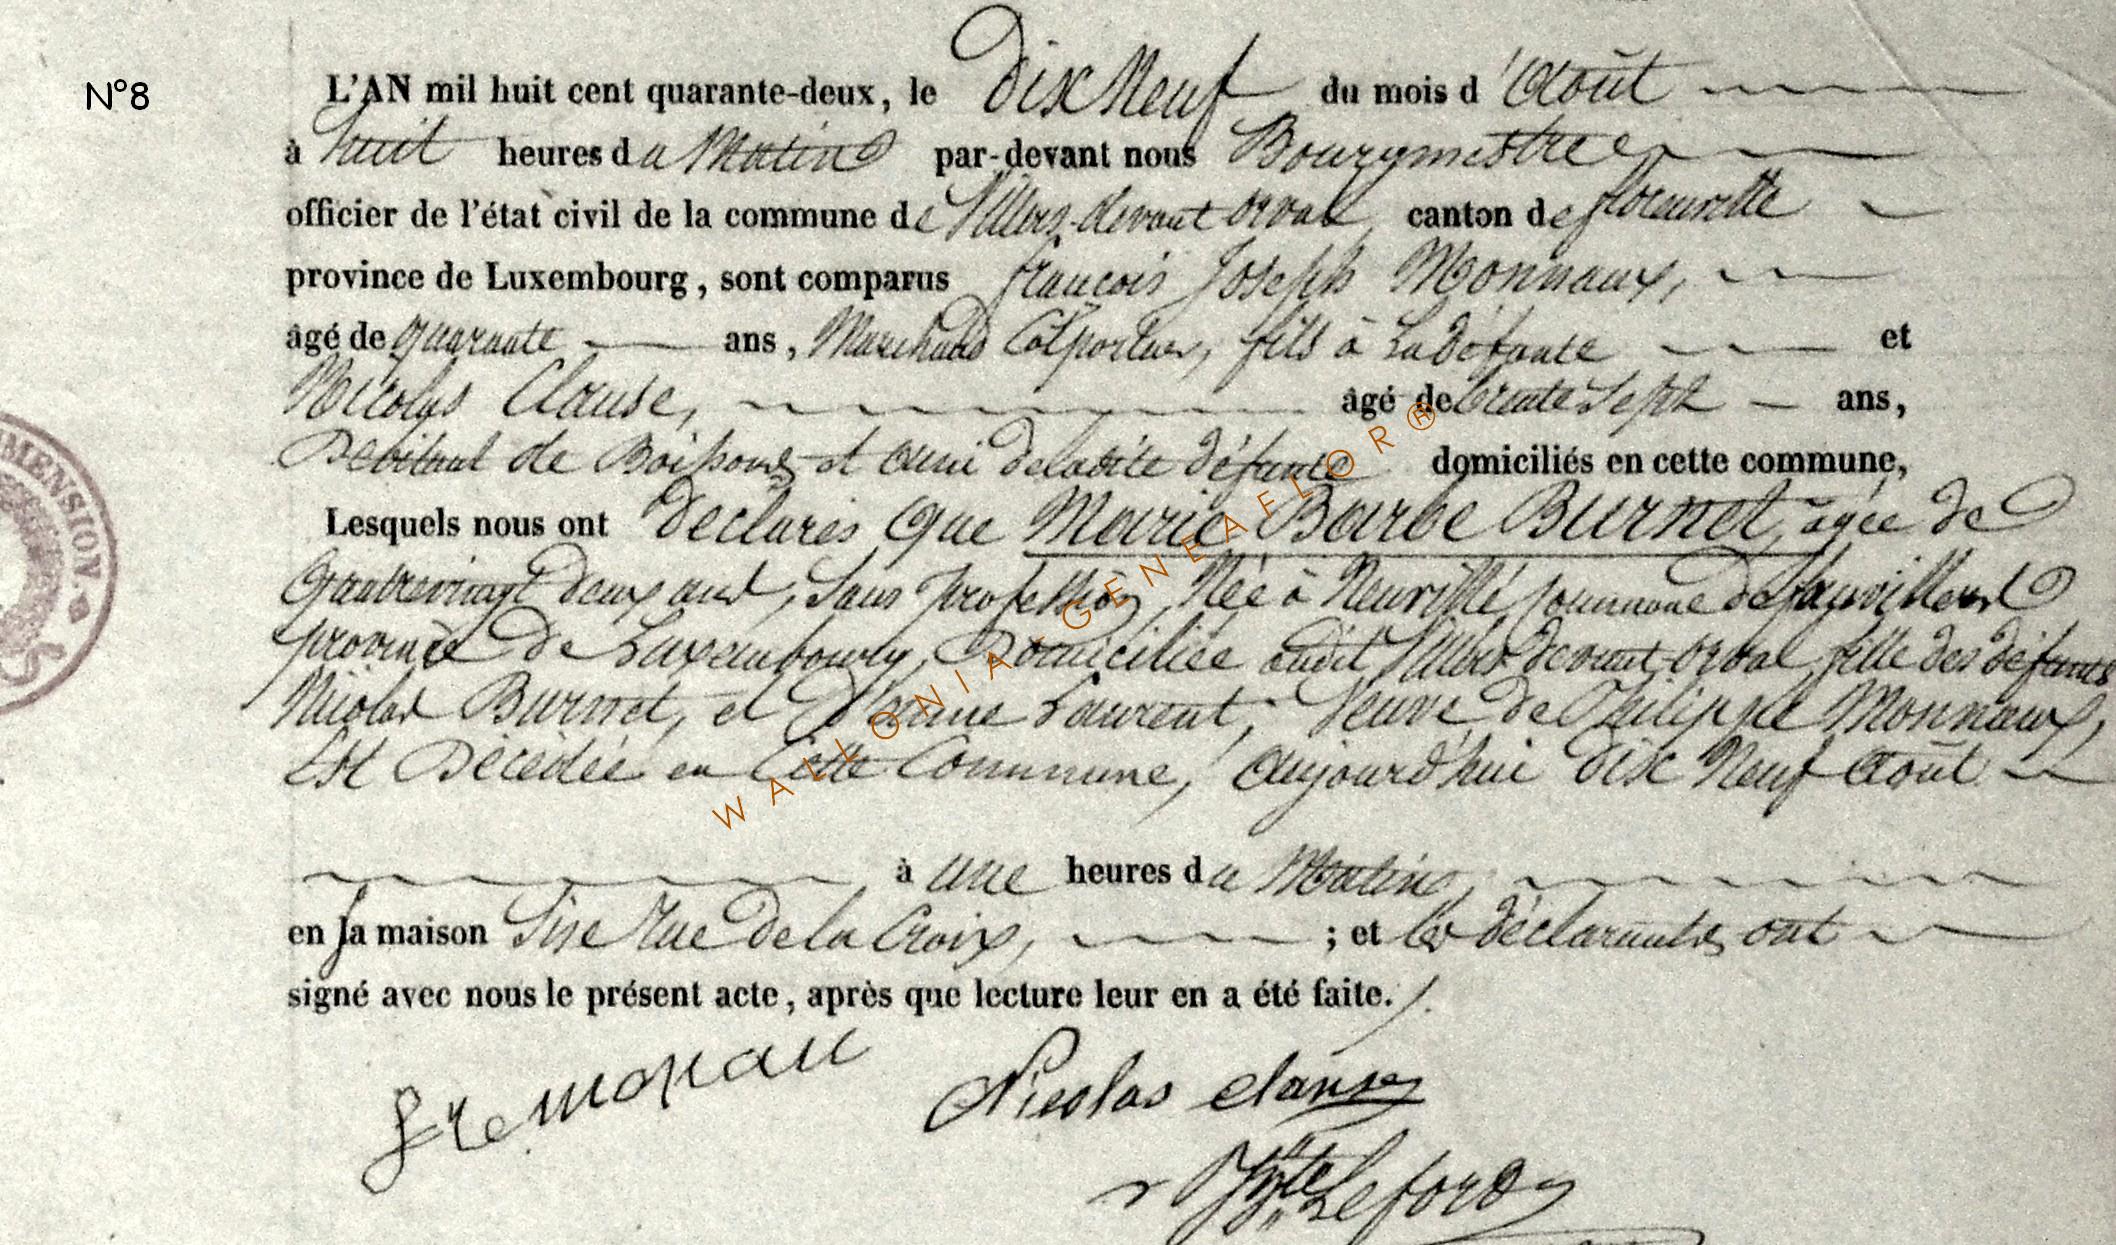 N°8
L'AN mil huit cent quarante-deux, le Dix Neuf du mois d'Août
à huit heures du Matin par-devant nous Bourgmestre
officier de l'état civil de la commune de Villers-devant orval canton de florenville
province de Luxembourg, sont comparus françois Joseph Monnaux,
âgé de quarante ans, Marchand Colporteur, fils à La défunte et
Nicolas Clause, âgé de trente Sept ans,
Debitant de Boissons et ami de ladite défunte domiciliés en cette commune,
Lesquels nous ont declarés que Marie Barbe Burnet, agée de
Quatrevingt deux ans, Sans profession, Née à Neuville Commune de fauvillers
province de Luxembourg, Domiciliée audit Villers devant-orval, fille des défunts
Nicolas Burnet, et Jeanne Laurent, Veuve de Philippe Monnaux,
Est Décédée en Cette Commune, aujourd'hui dix Neuf Août
à une heures du Matin,
en la maison Sise Rue de la Croix, ; et les déclarants ont
signé avec nous le présent acte, après que lecture leur en a été faite.
monau
Nicolas clause
Hyte Leford
WALLONIA-GENEAFLOR®
MENSION.